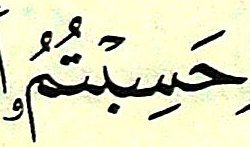 حَسِبْتُمُۥ